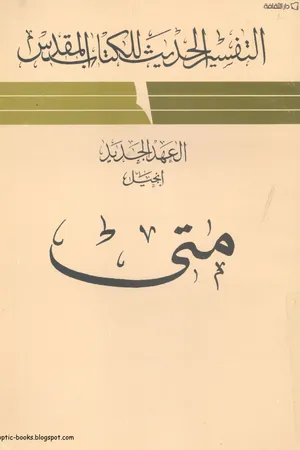 دار الثقافة
التفسير الحديث للكتاب المقدس
العهد الجديد
إنجيل
متى
optic-books.blogspot.com